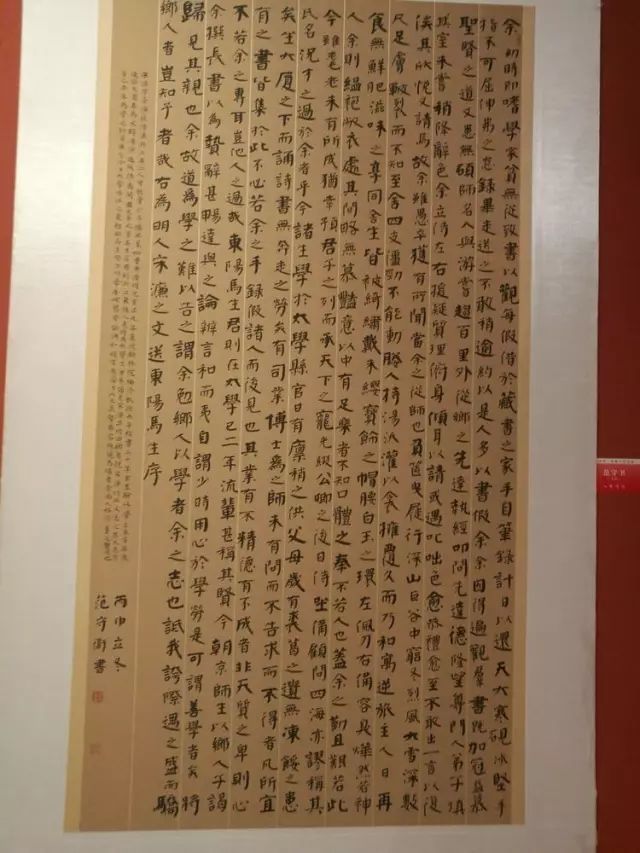 余幼時即嗜學家貧無從致書以觀每假借於藏書之家手自筆錄計日以還天大寒硯冰堅手
指不可屈伸弗之怠錄畢走送之不敢稍逾約以是人多以書假余余因得過觀群書既加冠益慕
聖賢之道又患無碩師名人與游嘗趨百里外從鄉之先達執經叩問先達德隆望尊門人弟子填
其室未嘗稍降辭色余立侍左右援疑質理俯身傾耳以請或遇叱咄色愈恭禮愈至不敢出一言以復
俟其欣悅又請焉故余雖愚卒獲有所聞當余之從師也負篋曳屣行深山巨谷中窮冬烈風大雪深數
尺足膚皸裂而不知至舍四支僵勁不能動媵人持湯沃灌以衾擁覆久而乃和寓逆旅主人日再
食無鮮肥滋味之享同舍生皆被綺繡戴朱纓寶飾之帽腰白玉之環左佩刀右備容臭燁然若神
人余則縕袍敝衣處其間略無慕豔意以中有足樂者不知口體之奉不若人也蓋余之勤且艱若此
今雖耄老未有所成猶幸預君子之列而承天下之寵光綴公卿之後日侍坐備顧問四海亦謬稱其
氏名況才之過於余者乎今諸生學於太學縣官日有廩稍之供父母歲有裘葛之遺無凍餒之患
矣坐大廈之下而誦詩書無奔走之勞矣有司業博士為之師未有問而不告求而不得者凡所宜
有之書皆集於此不必若余之手錄假諸人而後見也其業有不精德有不成者非天質之卑則心
不若余之專耳豈他人之過哉東陽馬生君則在太學已二年流輩甚稱其賢今朝京師生以鄉人子謁
余撰長書以為贄辭甚暢達與之論辨言和而夷自謂少時用心於學勞是可謂善學者矣將
歸見其親也余故道為學之難以告之謂余勉鄉人以學者余之志也詆我誇際遇之盛而驕
鄉人者豈知予者哉右為明人宋濂之文送東陽馬生序
丙申立冬
范守衛書